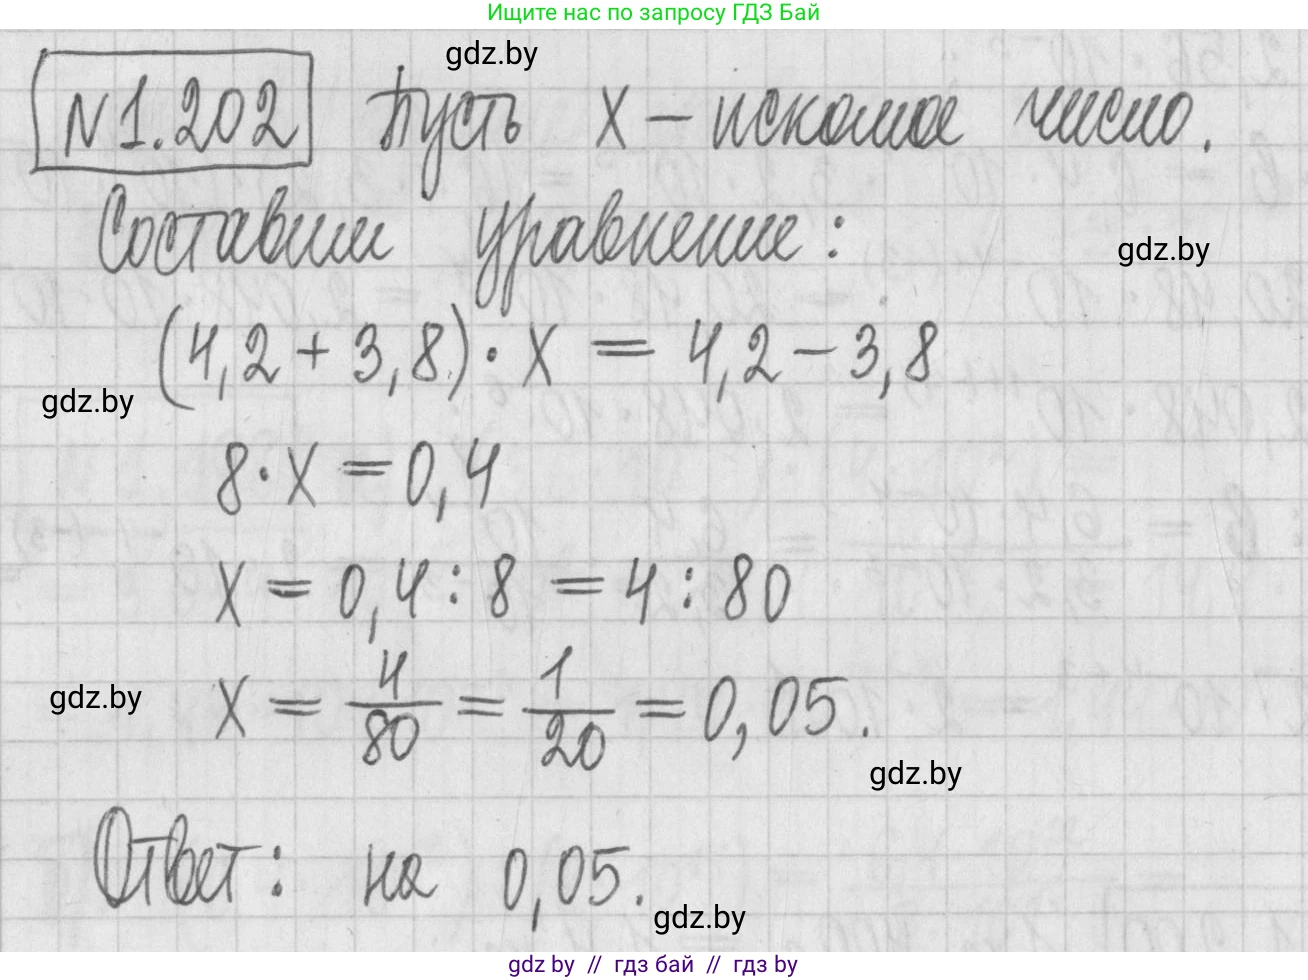 Ищите нас по запросу ГДЗ Бай
gdz.by
№1.202 Пусть x – искомое число.
Составим уравнение:
gdz.by
(4,2 + 3,8) · x = 4,2 – 3,8
gdz.by
8 · x = 0,4
x = 0,4 : 8 = 4 : 80
gdz.by
x = 4/80 = 1/20 = 0,05.
gdz.by
Ответ: на 0,05.
gdz.by
gdz by // гдз бай // гдз by